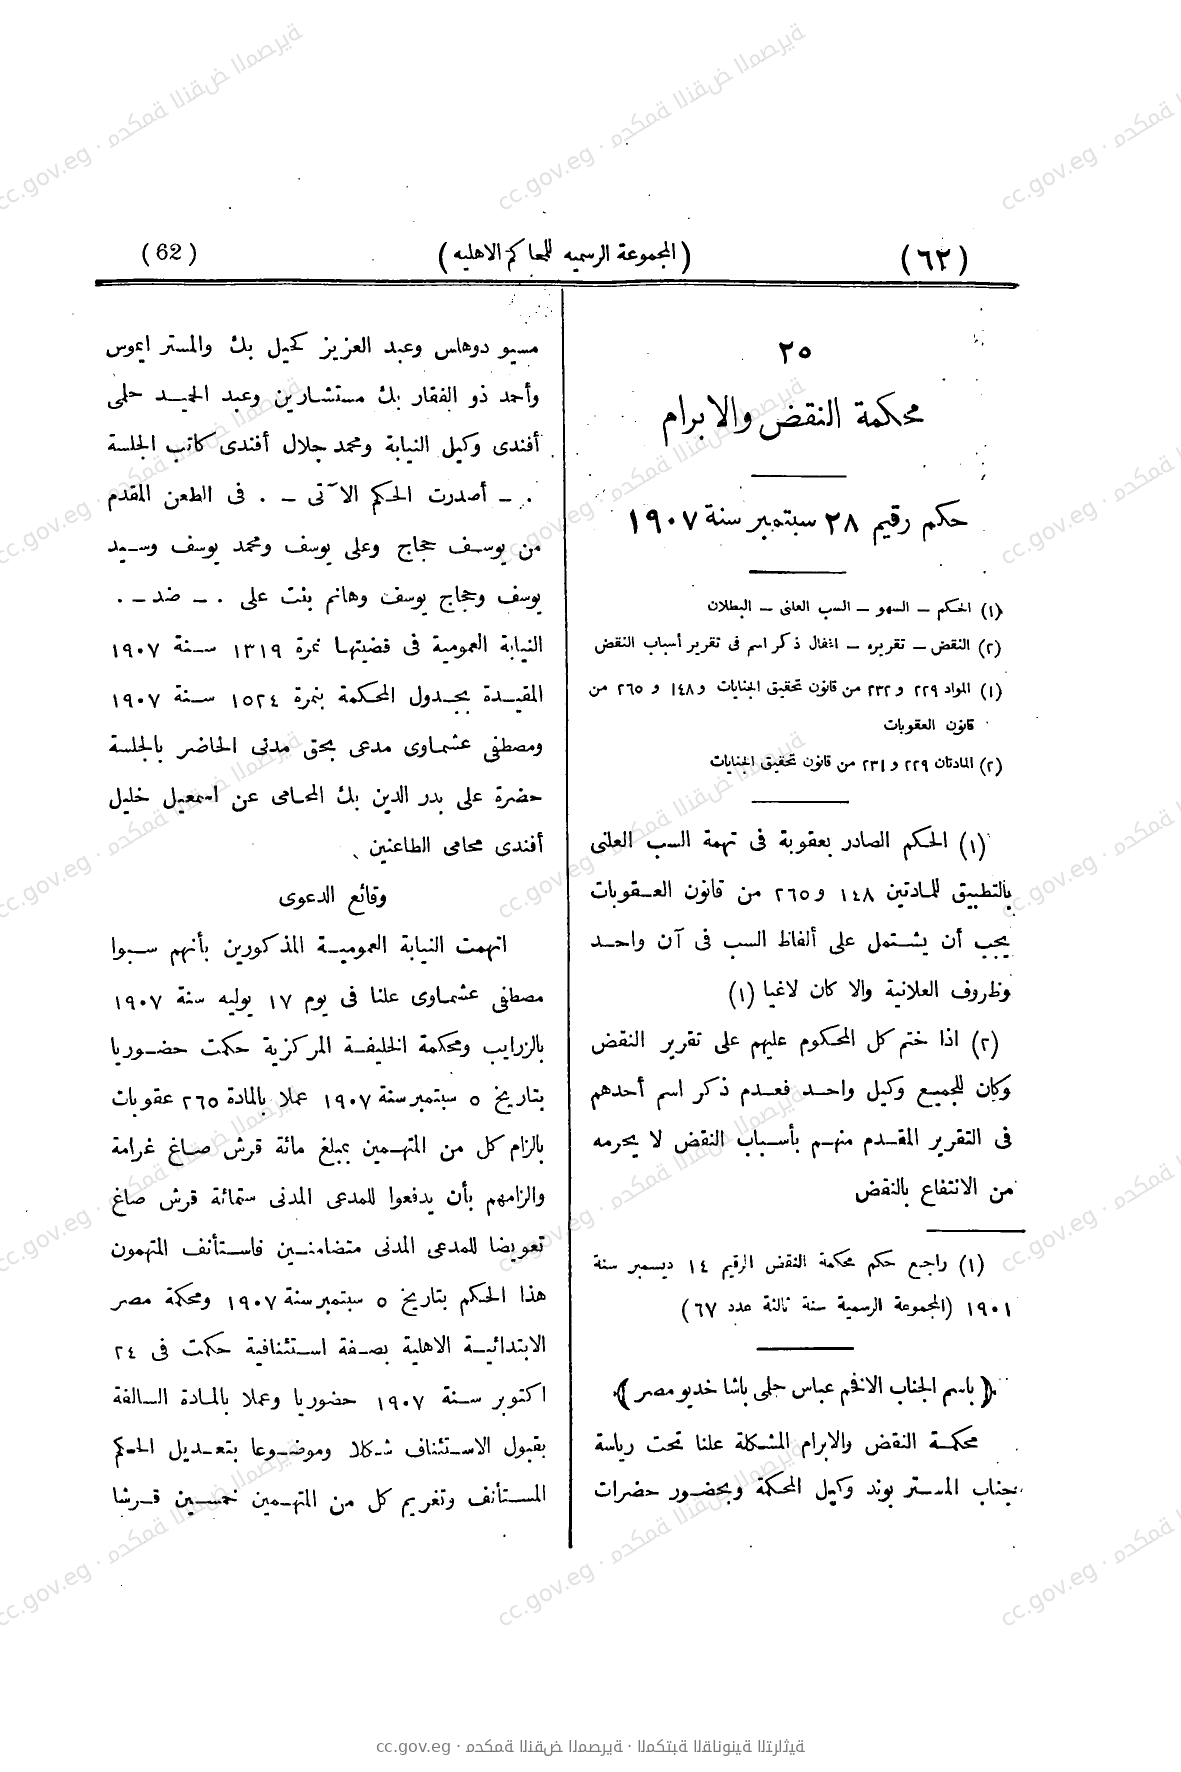 (٦٢)
(المجموعة الرسميه للمحاكم الاهليه)
(62)
٢٥
محكمة النقض والابرام
حكم رقيم ٢٨ سبتمبر سنة ١٩٠٧
(١) الحكم – السهو – السب العلنى – البطلان
(٢) النقض – تقريره – اغفال ذكر اسم فى تقرير أسباب النقض
(١) المواد ٢٢٩ و ٢٣٢ من قانون تحقيق الجنايات و١٤٨ و ٢٦٥ من
قانون العقوبات
(٢) المادتان ٢٢٩ و ٢٣١ من قانون تحقيق الجنايات
(١) الحكم الصادر بعقوبة فى تهمة السب العلنى
بالتطبيق للمادتين ١٤٨ و٢٦٥ من قانون العقوبات
يجب أن يشتمل على ألفاظ السب فى آن واحد
وظروف العلانية والا كان لاغيا (١)
(٢) اذا ختم كل المحكوم عليهم على تقرير النقض
وكان للجميع وكيل واحد فعدم ذكر اسم أحدهم
فى التقرير المقدم منهم بأسباب النقض لا يحرمه
من الانتفاع بالنقض
(١) راجع حكم محكمة النقض الرقيم ١٤ ديسمبر سنة
١٩٠١ (المجموعة الرسمية سنة ثالثة عدد ٦٧)
﴿باسم الجناب الافخم عباس حلمى باشا خديو مصر﴾
محكمة النقض والابرام المشكلة علنا تحت رياسة
جناب المستر بوند وكيل المحكمة وبحضور حضرات
مسيو دوهلس وعبد العزيز كحيل بك والمستر ايموس
وأحمد ذو الفقار بك مستشارين وعبد الحميد حلمى
أفندى وكيل النيابة ومحمد جلال أفندى كاتب الجلسة
. – أصدرت الحكم الآتى – . فى الطعن المقدم
من يوسف حجاج وعلى يوسف ومحمد يوسف وسيد
يوسف وحجاج يوسف وهانم بنت على . – ضد – .
النيابة العمومية فى قضيتها نمرة ١٣١٩ سنة ١٩٠٧
المقيدة بجدول المحكمة بنمرة ١٥٢٤ سنة ١٩٠٧
ومصطفى عشماوى مدعى بحق مدنى الحاضر بالجلسة
حضرة على بدر الدين بك المحامى عن اسمعيل خليل
أفندى محامى الطاعنين
وقائع الدعوى
اتهمت النيابة العمومية المذكورين بأنهم سبوا
مصطفى عشماوى علنا فى يوم ١٧ يوليه سنة ١٩٠٧
بالزرايب ومحكمة الخليفة المركزية حكمت حضوريا
بتاريخ ٥ سبتمبر سنة ١٩٠٧ عملا بالمادة ٢٦٥ عقوبات
بالزام كل من المتهمين بمبلغ مائة قرش صاغ غرامة
والزامهم بأن يدفعوا للمدعى المدنى ستمائة قرش صاغ
تعويضا للمدعى المدنى متضامنين فاستأنف المتهمون
هذا الحكم بتاريخ ٥ سبتمبر سنة ١٩٠٧ ومحكمة مصر
الابتدائية الاهلية بصفة استئنافية حكمت فى ٢٤
اكتوبر سنة ١٩٠٧ حضوريا وعملا بالمادة السالفة
بقبول الاستئناف شكلا وموضوعا بتعديل الحكم
المستأنف وتغريم كل من المتهمين خمسين قرشا
cc.gov.eg · محكمة النقض المصرية · المكتبة القانونية التراثية